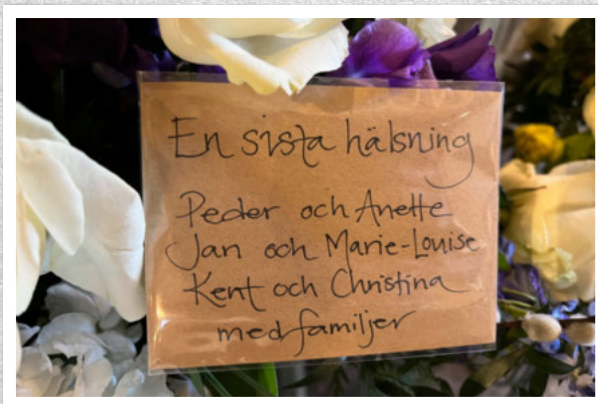 En sista hälsning
Peder och Anette
Jan och Marie-Louise
Kent och Christina
med familjer